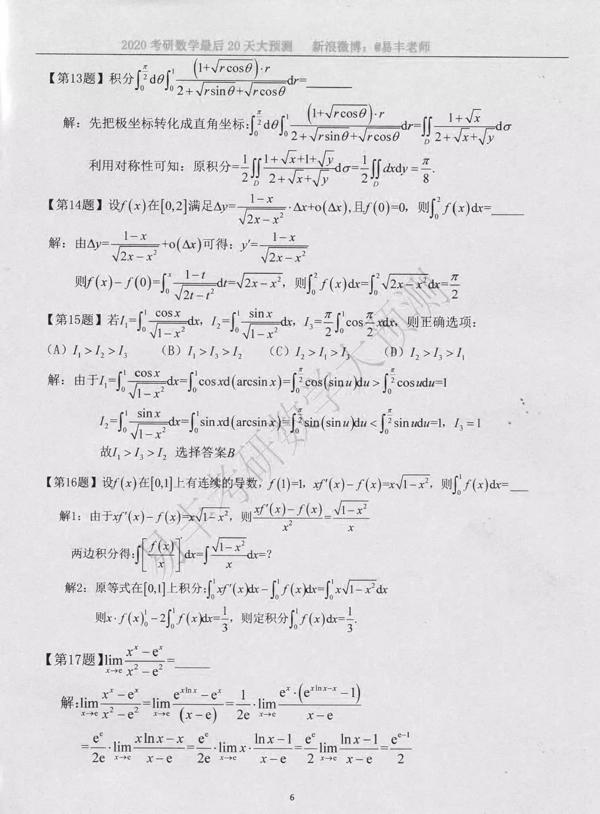 2020 考研数学最后 20 天大预测 新浪微博：@易丰老师
【第13题】积分∫_0^{π/2} dθ ∫_0^1 (1+√(r cosθ))·r / (2+√(r sinθ)+√(r cosθ)) dr=______
解：先把极坐标转化成直角坐标:∫_0^{π/2} dθ ∫_0^1 (1+√(r cosθ))·r / (2+√(r sinθ)+√(r cosθ)) dr=∬_D (1+√x)/(2+√x+√y) dσ
利用对称性可知：原积分=1/2 ∬_D (1+√x+1+√y)/(2+√x+√y) dσ=1/2 ∬_D dxdy = π/8.
【第14题】设f(x)在[0,2]满足Δy=(1-x)/√(2x-x²)·Δx+o(Δx),且f(0)=0，则∫_0^2 f(x)dx=_____
解：由Δy=(1-x)/√(2x-x²)+o(Δx)可得：y'=(1-x)/√(2x-x²)
则f(x)-f(0)=∫_0^x (1-t)/√(2t-t²) dt=√(2x-x²)，则∫_0^2 f(x)dx=∫_0^2 √(2x-x²)dx=π/2
【第15题】若I₁=∫_0^1 cosx/√(1-x²) dx，I₂=∫_0^1 sinx/√(1-x²) dx，I₃=π/2 ∫_0^1 cos π/2 xdx，则正确选项：
(A) I₁>I₂>I₃ (B) I₁>I₃>I₂ (C) I₂>I₁>I₃ (D) I₂>I₃>I₁
解：由于I₁=∫_0^1 cosx/√(1-x²) dx=∫_0^1 cosxd(arcsinx)=∫_0^{π/2} cos(sinu)du>∫_0^{π/2} cosudu=1
I₂=∫_0^1 sinx/√(1-x²) dx=∫_0^1 sinxd(arcsinx)=∫_0^{π/2} sin(sinu)du<∫_0^{π/2} sinudu=1，I₃=1
故I₁>I₃>I₂ 选择答案B
【第16题】设f(x)在[0,1]上有连续的导数，f(1)=1，xf'(x)-f(x)=x√(1-x²)，则∫_0^1 f(x)dx=___
解1：由于xf'(x)-f(x)=x√(1-x²)，则(xf'(x)-f(x))/x²=√(1-x²)/x
两边积分得:∫[f(x)/x]'dx=∫√(1-x²)/x dx=?
解2：原等式在[0,1]上积分:∫_0^1 xf'(x)dx-∫_0^1 f(x)dx=∫_0^1 x√(1-x²)dx
则x·f(x)|_0^1-2∫_0^1 f(x)dx=1/3，则定积分∫_0^1 f(x)dx=1/3.
【第17题】lim_{x→e} (x^x-e^x)/(x²-e²)=______
解:lim_{x→e} (x^x-e^x)/(x²-e²)=lim_{x→e} (e^{xlnx}-e^x)/(x-e)=1/2e·lim_{x→e} e^x·(e^{xlnx-x}-1)/(x-e)
=e^e/2e·lim_{x→e} (xlnx-x)/(x-e)=e^e/2e·lim_{x→e} x·(lnx-1)/(x-e)=e^e/2 lim_{x→e} (lnx-1)/(x-e)=e^{e-1}/2
易丰考研数学大预测
6